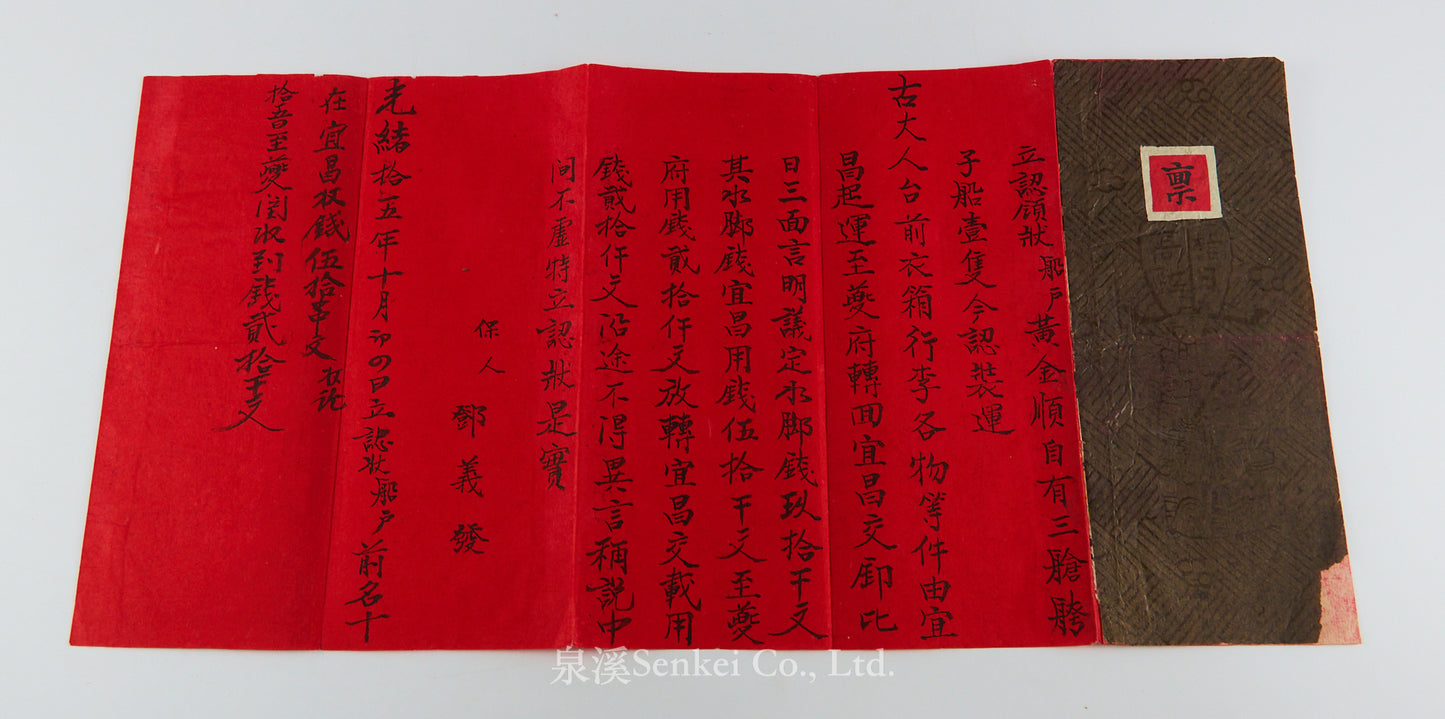 稟
立認領狀船戶黃金順自有三艙䑨
子船壹隻今認裝運
古大人台前衣箱行李各物等件由宜
昌起運至夔府轉回宜昌交卸比
日三面言明議定水脚錢玖拾千文
其水脚錢宜昌用錢伍拾千文至夔
府用錢貳拾仟文放轉宜昌交載用
錢貳拾仟文沿途不得異言稱說中
间不虛特立認狀是實
保人 鄧義發
光緒拾五年十月初四日立認狀船戶前名十
在宜昌收錢伍拾串文
拾吾至夔関收到錢貳拾千文
泉溪Senkei Co., Ltd.